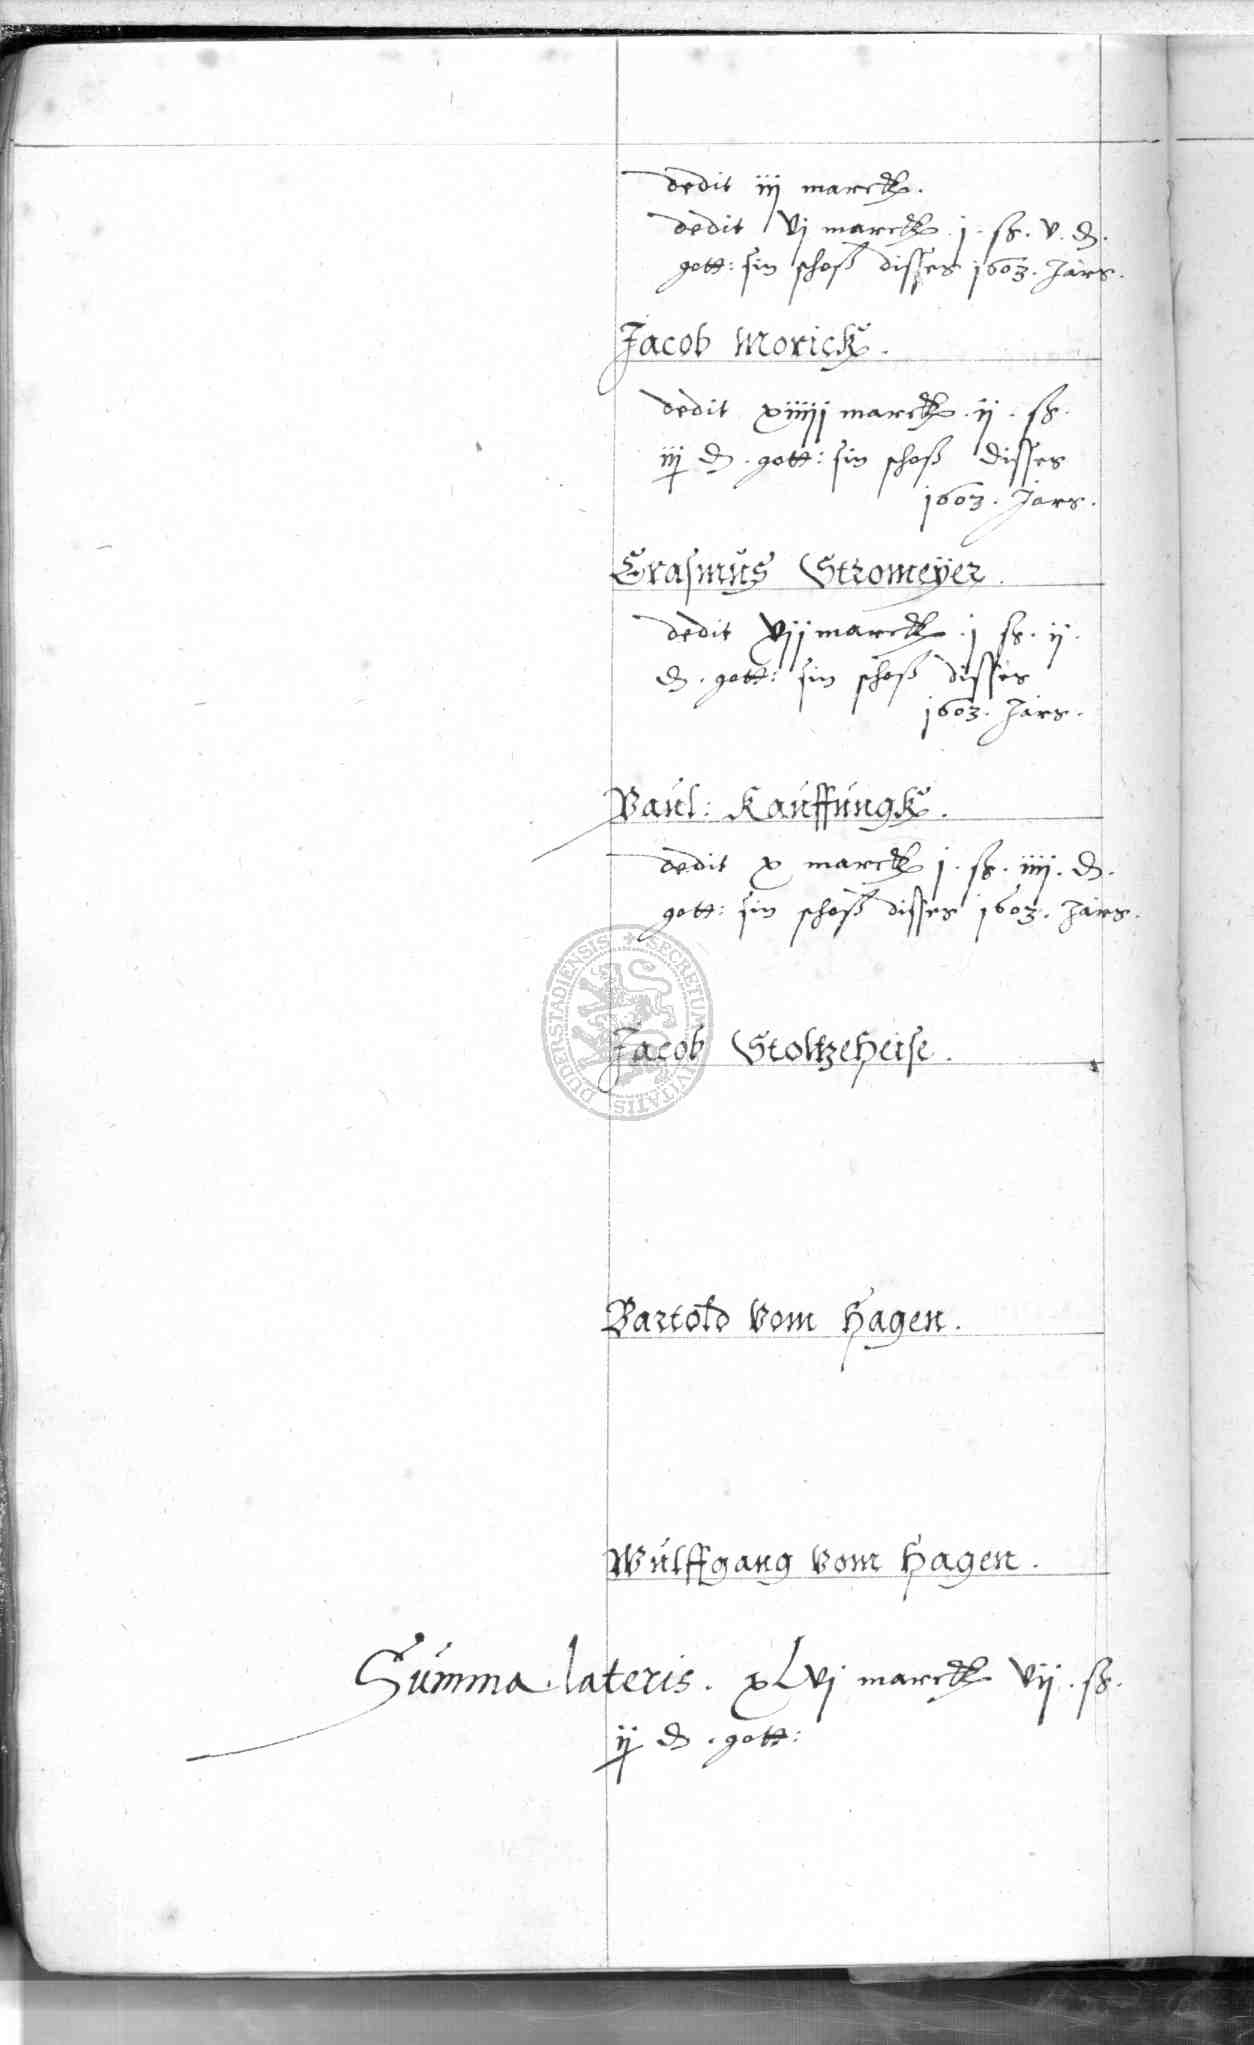 dedit iij marck.
dedit vj marck. j. ß. v. d.
gott: sin schoß disses 1603. Jars.
Jacob Morick.
dedit xiiiij marck. ij. ß.
iiij d. gott: sin schoß disses
1603. Jars.
Erasmus Stromeÿer.
dedit xij marck. j ß. ij.
d. gott: sin schoß disses
1603. Jars.
Paul: Kauffungk.
dedit x marck j. ß. iiij. d.
gott: sin schoß disses 1603. Jars.
SECRETUM CIVITATIS DUDERSTADIENSIS
Jacob Stoltzeheise.
Bartold vom Hagen.
Wulffgang vom Hagen.
Summa lateris. xLvj marck vij. ß.
ij d. gott: